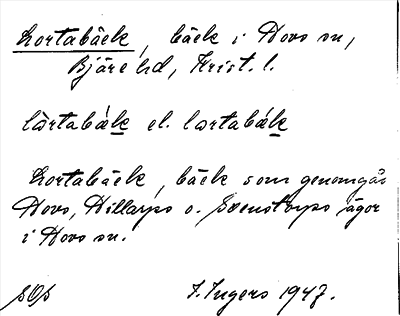 Lortabäck, bäck i Hovs sn,
Bjäre hd, Krist. l.
lòrtabæ̀k el. lortabæ̀k
Lortabäck, bäck som genomgår
Hovs, Hillarps o. Svenstorps ägor
i Hovs sn.
I. Ingers 1947.